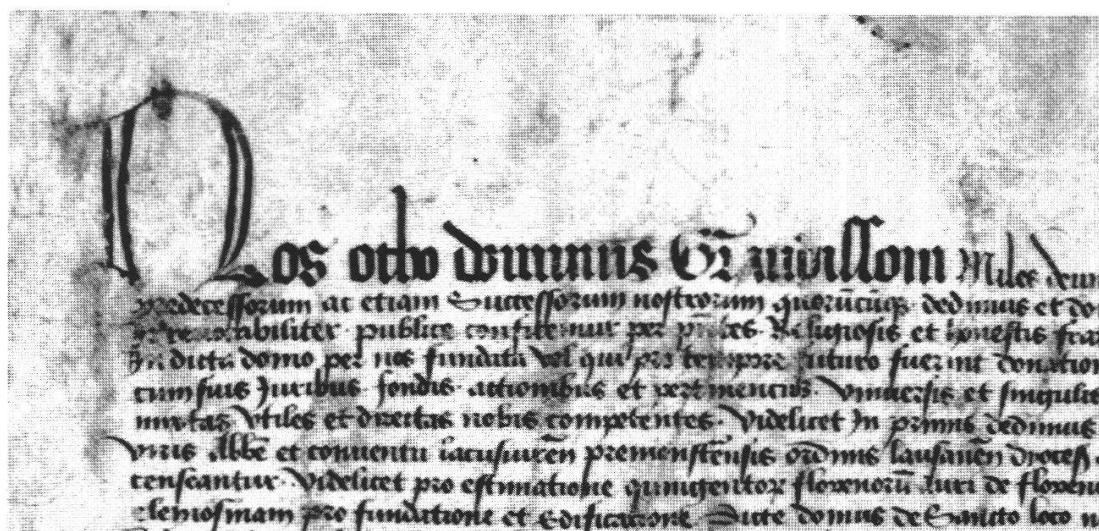 Nos otho dominus Granissom Miles
predecessorum ac etiam Successorum nostrorum quorūcūq dedimus et
publice confitemur per pñtes Religiosis et honestis
In dicta domo per nos fundata vel qui pro tempore futuro fuerint donation
cum suis Juribus fondis actionibus et pertinenciis Vniuersis et singulis
mixtas Vtiles et directas nobis competentes Videlicet In primis dedimus
viris Abbē et conuentu premonstensis ordinis lausanēn dioces
censcantur Videlicet pro estimatione quingentor florenorū Auri de
elemosinam pro fundatione et Edificatione Dicte domus de Sancto loco